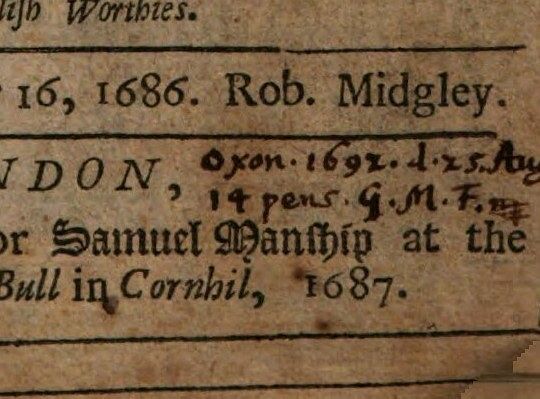 lish Worthies.
16, 1686. Rob. Midgley.
NDON,
Oxon. 1692. d. 25. Aug
14 pens. G. M. F.
or Samuel Manship at the
Bull in Cornhil, 1687.